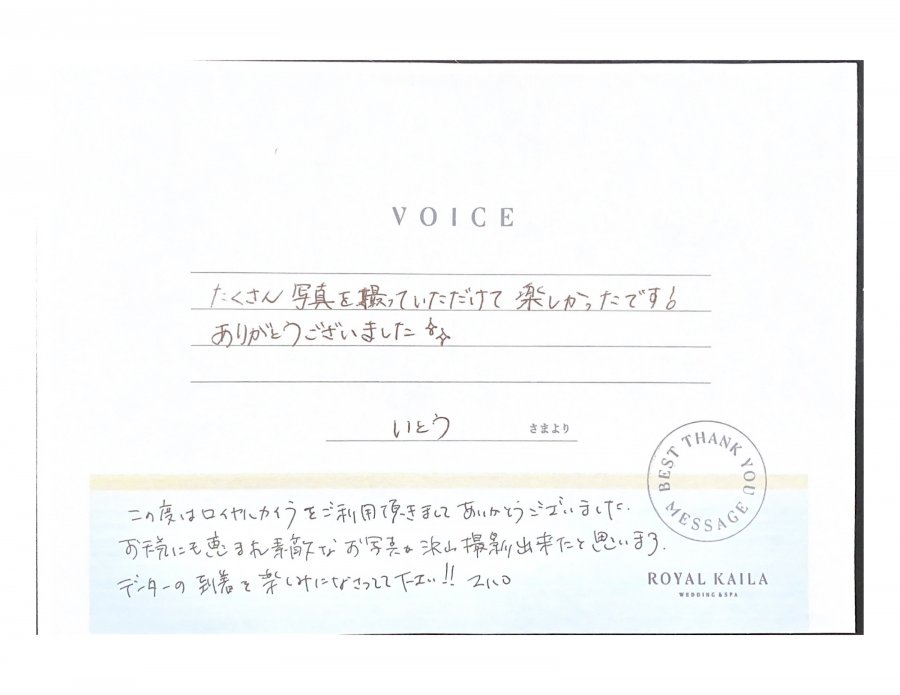 VOICE
たくさん写真を撮っていただけて楽しかったです!
ありがとうございました
いとう さまより
BEST THANK YOU MESSAGE
この度はロイヤルカイラをご利用頂きまして ありがとうございました.
お天気にも恵まれ素敵なお写真が沢山撮影出来たと思います.
データーの到着を楽しみになさってて下さい!!
ROYAL KAILA
WEDDING & SPA